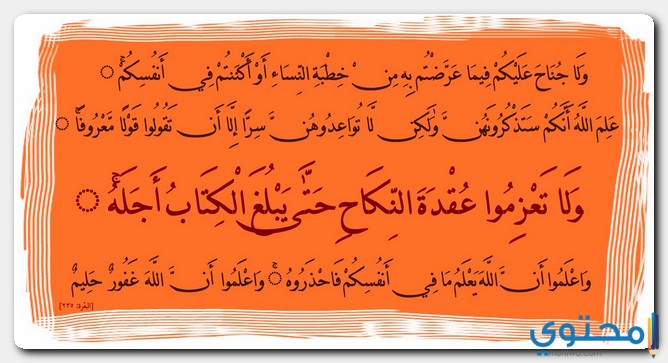 وَلَا جُنَاحَ عَلَيْكُمْ فِيمَا عَرَّضْتُم بِهِ مِنْ خِطْبَةِ النِّسَاءِ أَوْ أَكْنَنتُمْ فِي أَنفُسِكُمْ ۚ
عَلِمَ اللَّهُ أَنَّكُمْ سَتَذْكُرُونَهُنَّ وَلَٰكِن لَّا تُوَاعِدُوهُنَّ سِرًّا إِلَّا أَن تَقُولُوا قَوْلًا مَّعْرُوفًا ۚ
وَلَا تَعْزِمُوا عُقْدَةَ النِّكَاحِ حَتَّىٰ يَبْلُغَ الْكِتَابُ أَجَلَهُ ۚ
وَاعْلَمُوا أَنَّ اللَّهَ يَعْلَمُ مَا فِي أَنفُسِكُمْ فَاحْذَرُوهُ ۚ وَاعْلَمُوا أَنَّ اللَّهَ غَفُورٌ حَلِيمٌ
[البقرة: ٢٣٥]
محتوي